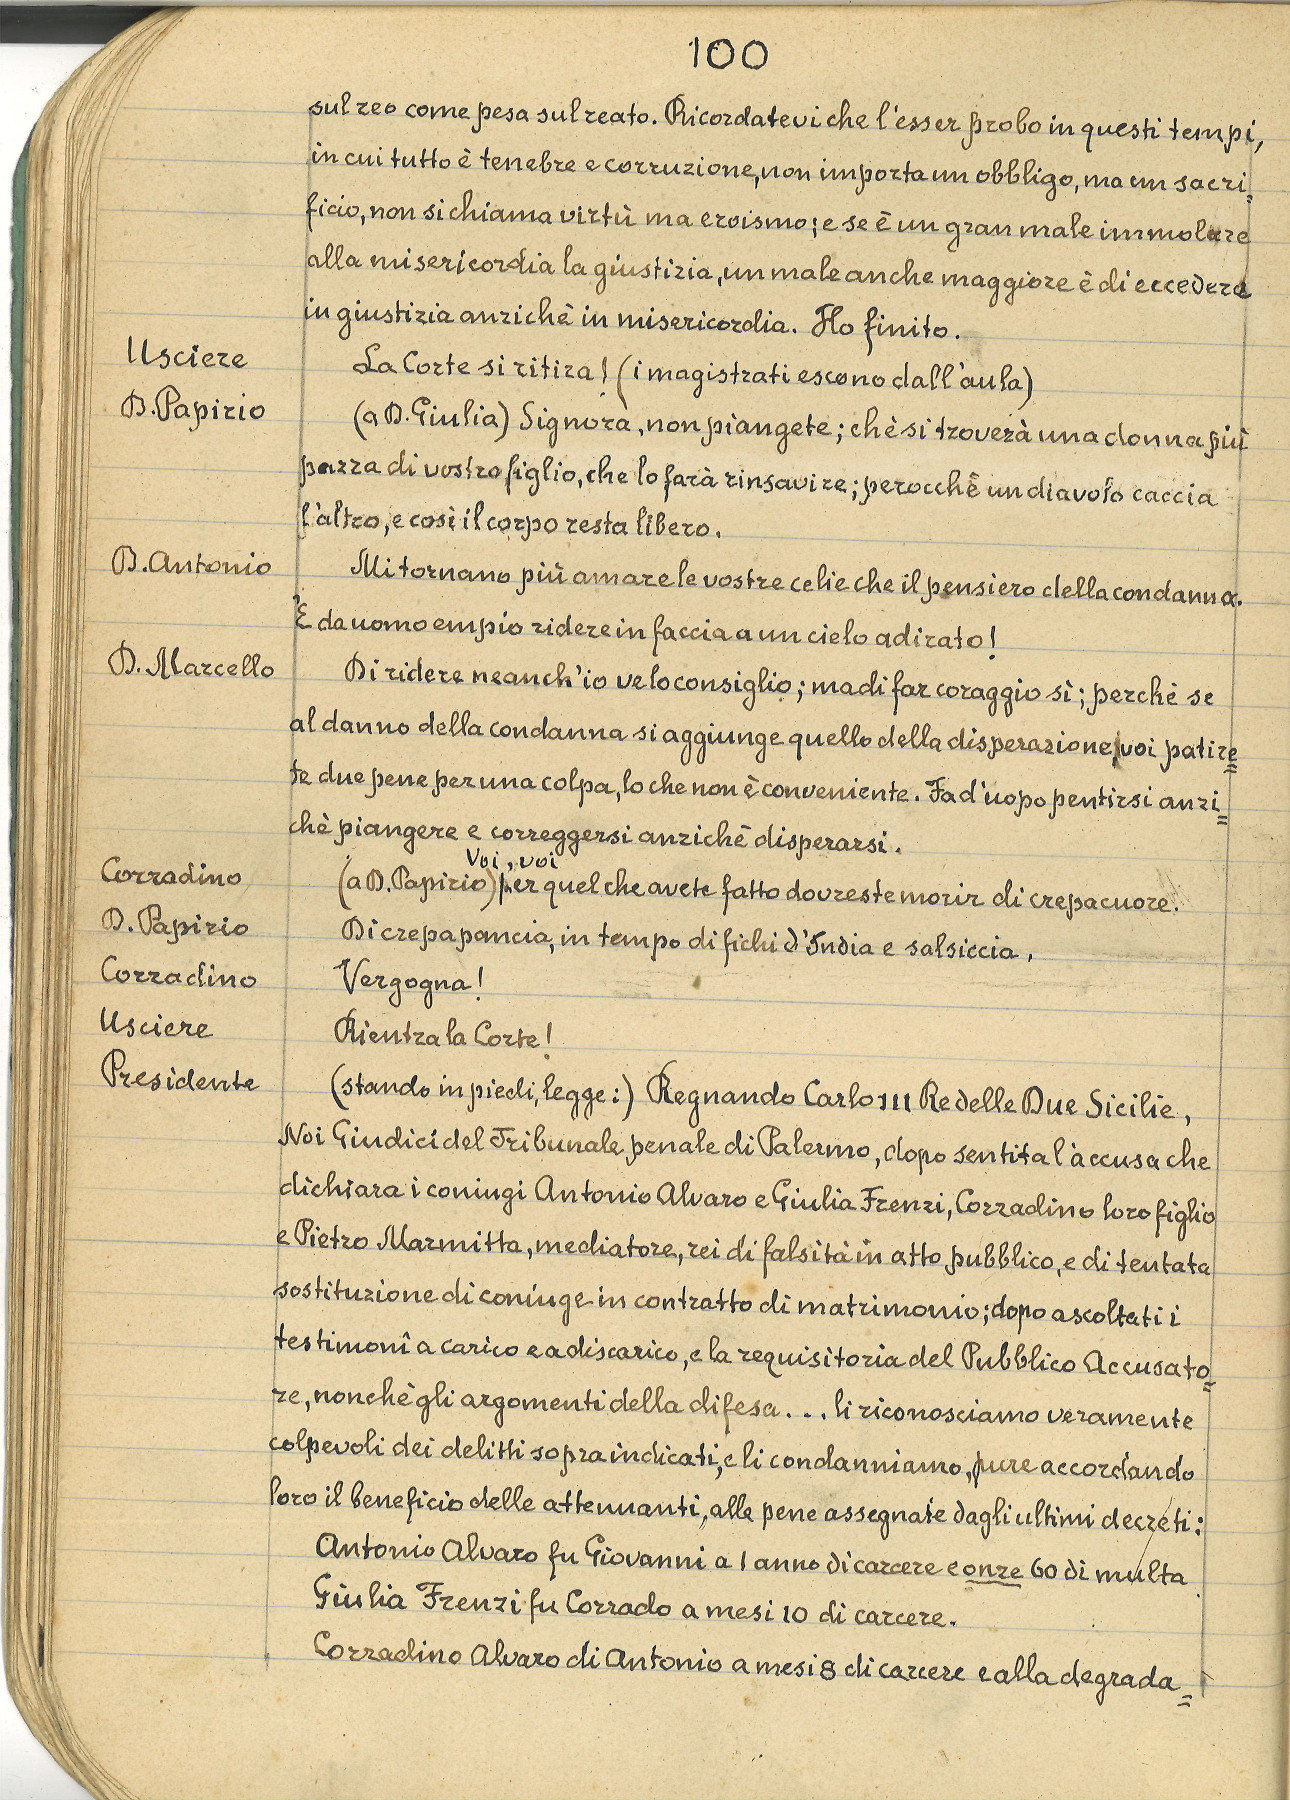 100
sul reo come pesa sul reato. Ricordatevi che l'esser probo in questi tempi,
in cui tutto è tenebre e corruzione, non importa un obbligo, ma un sacri=
ficio, non si chiama virtù ma eroismo; e se è un gran male immolare
alla misericordia la giustizia, un male anche maggiore è di eccedere
in giustizia anzichè in misericordia. Ho finito.
Usciere La Corte si ritira! (i magistrati escono dall'aula)
D. Papirio (a D. Giulia) Signora, non piangete; chè si troverà una donna più
pazza di vostro figlio, che lo farà rinsavire; perocchè un diavolo caccia
l'altro, e così il corpo resta libero.
D. Antonio Mi tornano più amare le vostre celie che il pensiero della condanna.
È da uomo empio ridere in faccia a un cielo adirato!
D. Marcello Di ridere neanch'io ve lo consiglio; ma di far coraggio sì; perchè se
al danno della condanna si aggiunge quello della disperazione, voi patire=
te due pene per una colpa, lo che non è conveniente. Fa d'uopo pentirsi anzi=
chè piangere e correggersi anzichè disperarsi.
Voi, voi
Corradino (a D. Papirio) per quel che avete fatto dovreste morir di crepacuore.
D. Papirio Di crepapancia, in tempo di fichi d'India e salsiccia.
Corradino Vergogna!
Usciere Rientra la Corte!
Presidente (stando in piedi, legge:) Regnando Carlo III Re delle Due Sicilie,
Noi Giudici del Tribunale penale di Palermo, dopo sentita l'accusa che
dichiara i coniugi Antonio Alvaro e Giulia Frenzi, Corradino loro figlio
e Pietro Marmitta, mediatore, rei di falsità in atto pubblico, e di tentata
sostituzione di coniuge in contratto di matrimonio; dopo ascoltati i
testimonî a carico e a discarico, e la requisitoria del Pubblico Accusato=
re, nonchè gli argomenti della difesa... li riconosciamo veramente
colpevoli dei delitti sopra indicati, e li condanniamo, pure accordando
loro il beneficio delle attenuanti, alle pene assegnate dagli ultimi decreti:
Antonio Alvaro fu Giovanni a 1 anno di carcere e onze 60 di multa
Giulia Frenzi fu Corrado a mesi 10 di carcere.
Corradino Alvaro di Antonio a mesi 8 di carcere e alla degrada=